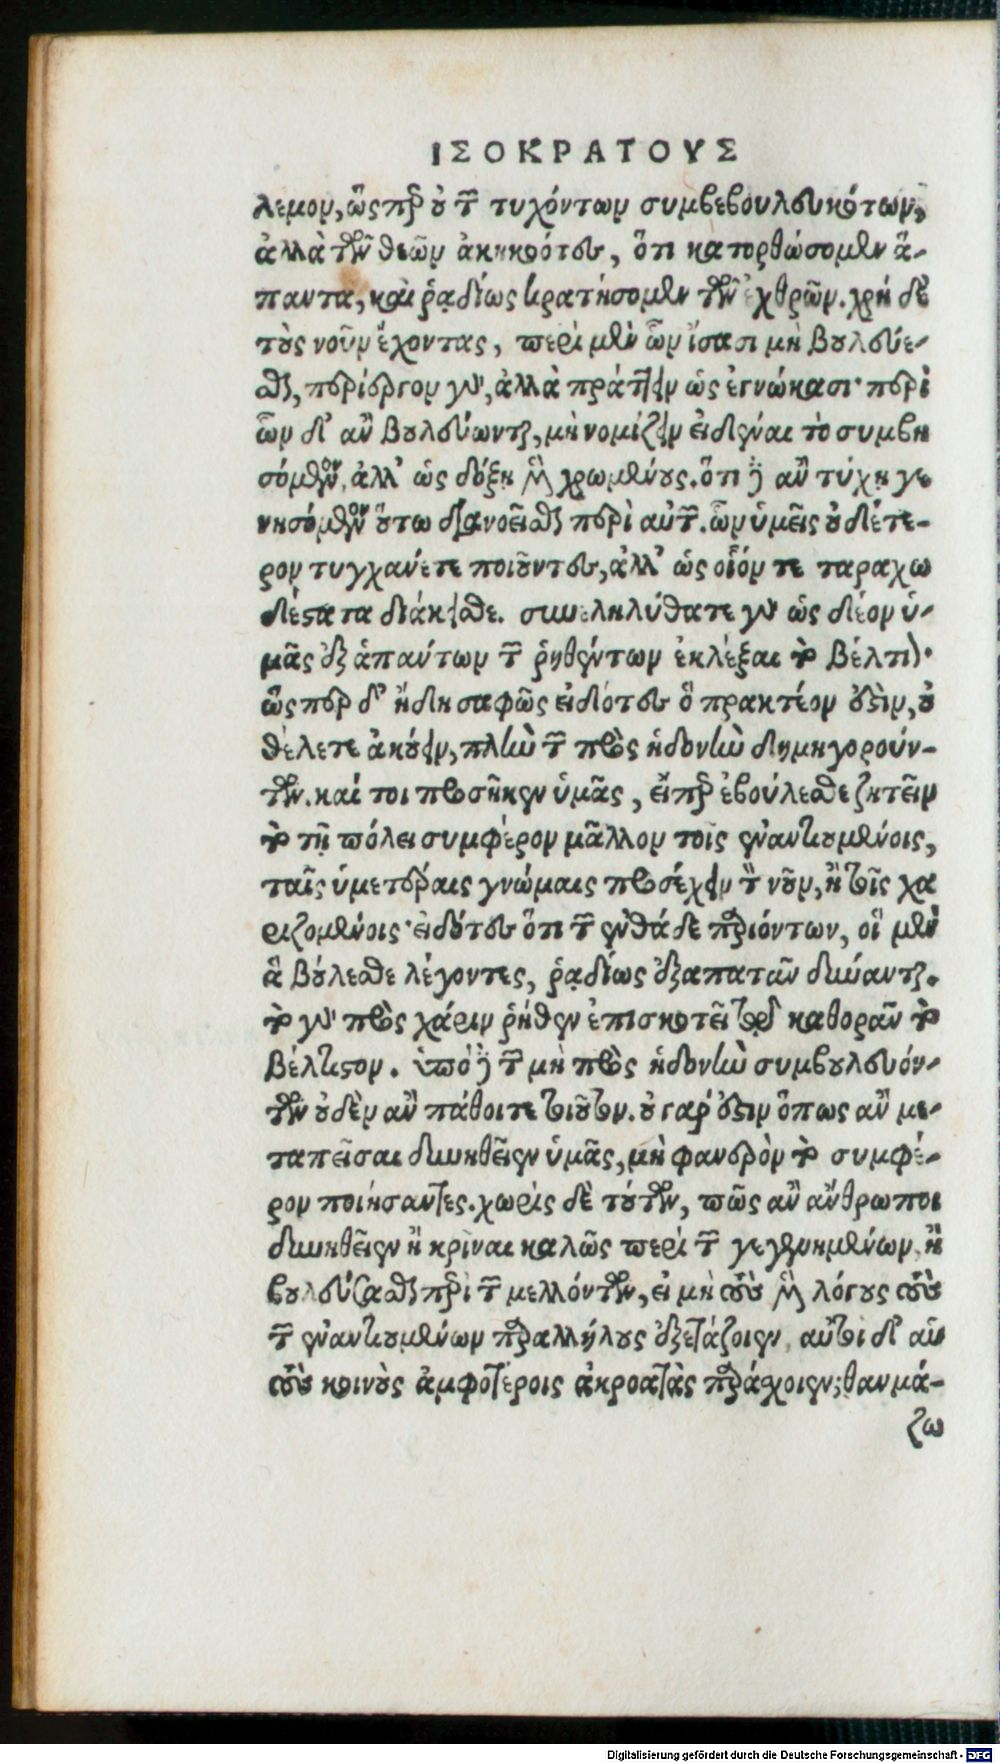 ΙΣΟΚΡΑΤΟΥΣ
λεμον, ὥσπερ οὐ τῶν τυχόντων συμβεβουλευκότων,
ἀλλὰ τῶν θεῶν ἀκηκοότες, ὅτι κατορθώσομεν ἅ-
παντα, καὶ ῥᾳδίως κρατήσομεν τῶν ἐχθρῶν. χρὴ δὲ
τοὺς νοῦν ἔχοντας, περὶ μὲν ὧν ἴσασι μὴ βουλεύε-
σθαι, περίεργον γὰρ, ἀλλὰ πράττειν ὡς ἐγνώκασι· περὶ
ὧν δ' ἂν βουλεύωνται, μὴ νομίζειν εἰδέναι τὸ συμβη
σόμενον, ἀλλ' ὡς δόξῃ μὲν χρωμένους. ὅτι δὲ ἂν τύχῃ γε
νησόμενον οὕτω διανοεῖσθαι περὶ αὐτῶν. ὧν ὑμεῖς οὐδέτε-
ρον τυγχάνετε ποιοῦντες, ἀλλ' ὡς οἷόν τε ταραχω
δέστατα διάκεισθε. συνεληλύθατε γὰρ ὡς δέον ὑ-
μᾶς ἐξ ἁπάντων τῶν ῥηθέντων ἐκλέξαι τὸ βέλτιστον·
ὥσπερ δ' ἤδη σαφῶς εἰδότες ὃ πρακτέον ἐστὶν, οὐ
θέλετε ἀκούειν, πλὴν τῶν πρὸς ἡδονὴν δημηγορούν-
των. καί τοι προσῆκεν ὑμᾶς, εἴπερ ἐβούλεσθε ζητεῖν
τὸ τῇ πόλει συμφέρον μᾶλλον τοῖς ἐναντιουμένοις,
ταῖς ὑμετέραις γνώμαις προσέχειν τὸν νοῦν, ἢ τοῖς χα
ριζομένοις· εἰδότες ὅτι τῶν ἐνθάδε παριόντων, οἱ μὲν
ἃ βούλεσθε λέγοντες, ῥᾳδίως ἐξαπατᾶν δύνανται.
τὸ γὰρ πρὸς χάριν ῥηθὲν ἐπισκοτεῖ τῷ καθορᾶν τὸ
βέλτιστον. ὑπὸ δὲ τῶν μὴ πρὸς ἡδονὴν συμβουλευόν-
των οὐδὲν ἂν πάθοιτε τοιοῦτον. οὐ γάρ ἐστιν ὅπως ἂν με-
ταπεῖσαι δυνηθεῖεν ὑμᾶς, μὴ φανερὸν τὸ συμφέ-
ρον ποιήσαντες. χωρὶς δὲ τούτων, πῶς ἂν ἄνθρωποι
δυνηθεῖεν ἢ κρῖναι καλῶς περὶ τῶν γεγενημένων, ἢ
βουλεύσασθαι περὶ τῶν μελλόντων, εἰ μὴ τοὺς μὲν λόγους τοὺς
τῶν ἐναντιουμένων παραλλήλους ἐξετάζοιεν, αὐτοὶ δ' αὑ
τοὺς κοινοὺς ἀμφοτέροις ἀκροατὰς παράσχοιεν; θαυμά-
ζω
Digitalisierung gefördert durch die Deutsche Forschungsgemeinschaft - DFG